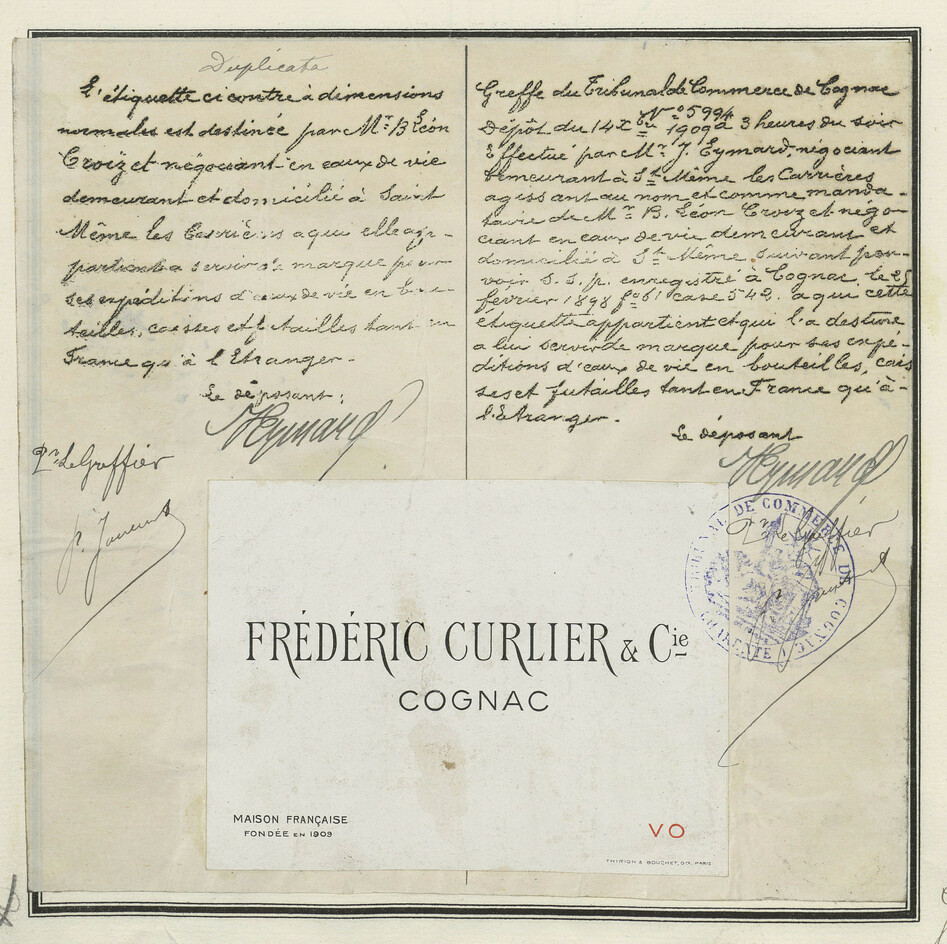 Duplicata
L'étiquette ci contre à dimensions
normales est destinée par Mr. B Léon
Croizet négociant en eaux de vie
demeurant et domicilié à Saint
Même les Carrières a qui elle ap-
partient a servir de marque pour
ses expéditions d'eaux de vie en bou-
teilles, caisses et futailles tant en
France qu'à l'Etranger.
Le déposant:
Eymard
Pr. Le Greffier
Greffe du Tribunal de Commerce de Cognac
No 5994
Dépôt du 14 1909 à 3 heures du soir
Effectué par Mr. J. Eymard, négociant
demeurant à St. Même les Carrières
agissant au nom et comme manda-
taire de Mr. B. Léon Croizet négo-
ciant en eaux de vie demeurant et
domicilié à St. Même suivant pou-
voir S. S. p. enregistré à Cognac, le 25
février 1898 fo 61 case 542. a qui cette
étiquette appartient et qui l'a destiné
a lui servir de marque pour ses expé-
ditions d'eaux de vie en bouteilles, cais
ses et futailles tant en France qu'à-
l'Etranger.
Le déposant
Eymard
Pr. Le Greffier
TRIBUNAL DE COMMERCE DE COGNAC
CHARENTE
FRÉDÉRIC CURLIER & Cie
COGNAC
MAISON FRANÇAISE
FONDÉE EN 1909
VO
THIRION & BOUCHET, Gr. PARIS